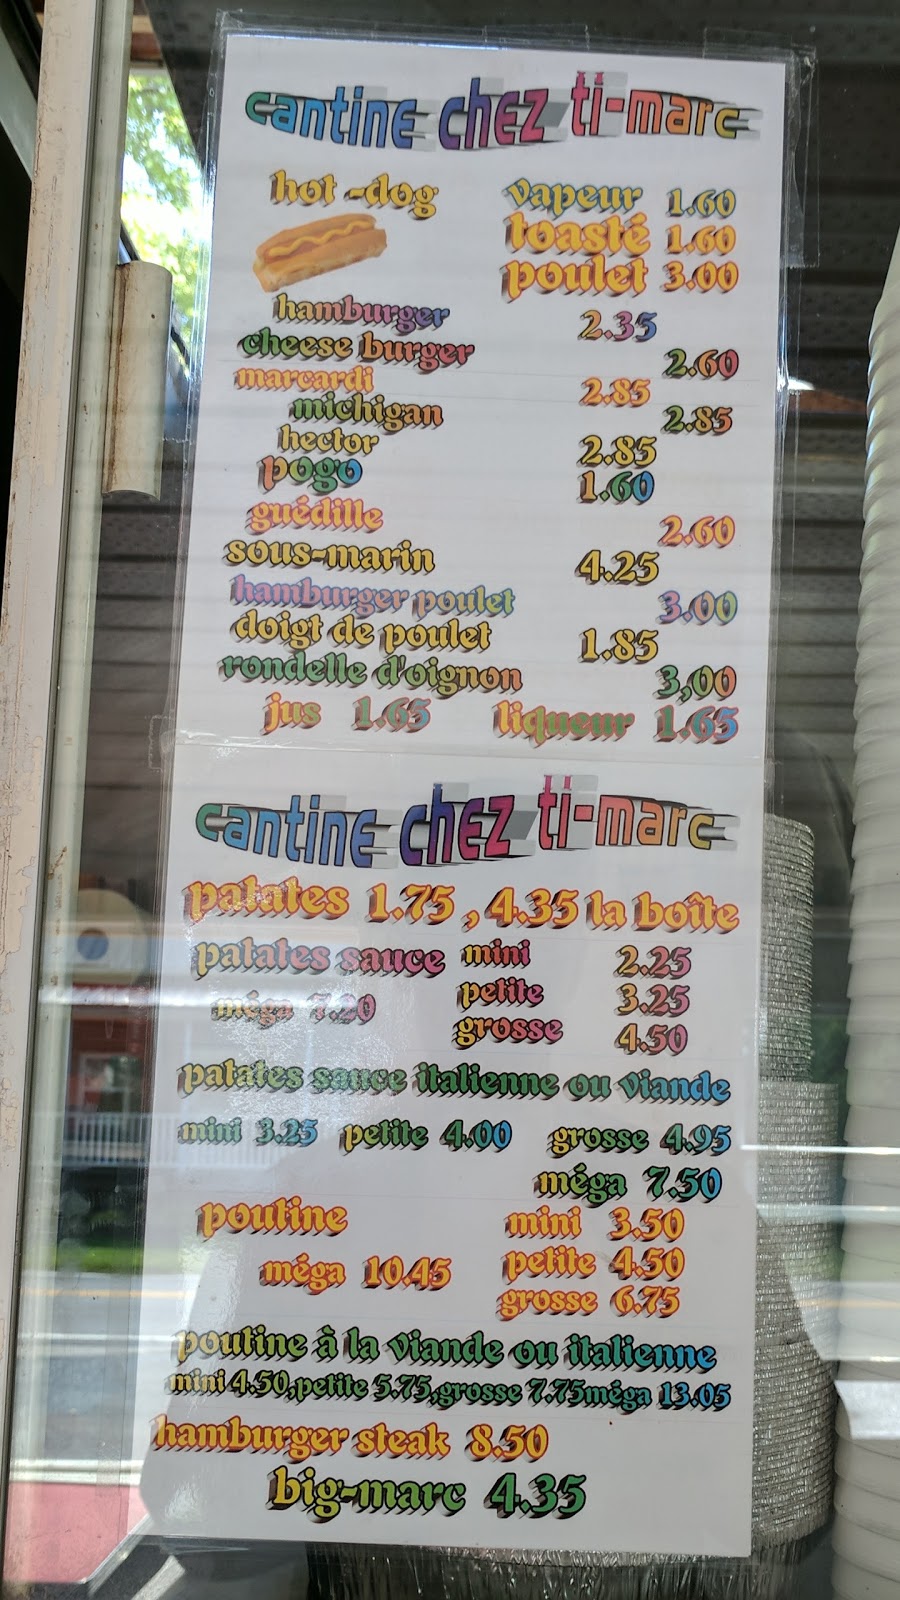 cantine chez ti-marc
hot -dog vapeur 1.60
toasté 1.60
poulet 3.00
hamburger 2.35
cheese burger 2.60
marcardi 2.85
michigan 2.85
hector 2.85
pogo 1.60
guédille 2.60
sous-marin 4.25
hamburger poulet 3.00
doigt de poulet 1.85
rondelle d'oignon 3,00
jus 1.65 liqueur 1.65
cantine chez ti-marc
patates 1.75 , 4.35 la boîte
patates sauce mini 2.25
petite 3.25
méga 7.20
grosse 4.50
patates sauce italienne ou viande
mini 3.25 petite 4.00 grosse 4.95
méga 7.50
poutine mini 3.50
méga 10.45 petite 4.50
grosse 6.75
poutine à la viande ou italienne
mini 4.50,petite 5.75,grosse 7.75méga 13.05
hamburger steak 8.50
big-marc 4.35